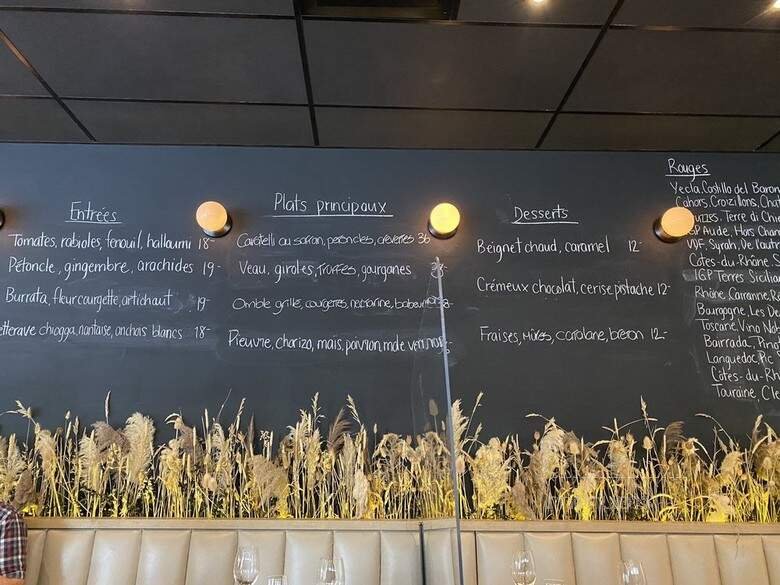 Entrées
Tomates, rabioles, fenouil, halloumi 18-
Pétoncle, gingembre, arachides 19-
Burrata, fleur courgette, artichaut 19-
betterave chiogga, nantaise, anchois blancs 18-
Plats principaux
Cavatelli au safran, petoncles, crevettes 36
Veau, giroles, truffes, gourganes
Omble grillé, courgettes, nectarine,
Pieuvre, chorizo, maïs, poivron,
Desserts
Beignet chaud, caramel 12-
Crémeux chocolat, cerise, pistache 12-
Fraises, mûres, breton 12-
Rouges
Yecla, Castillo del Baron
Cahors, Croizillons, Chat
Terre di Cha
Aude, Hors Cham
VDF, Syrah, De Haut
Côtes-du-Rhône, S
IGP Terres Sicilian
Rhône, Cairanne, Ra
Bourgogne, Les De
Toscane, Vino No
Bairrada, Pinot
Languedoc, Pic
Côtes-du-Rh
Touraine, Cle